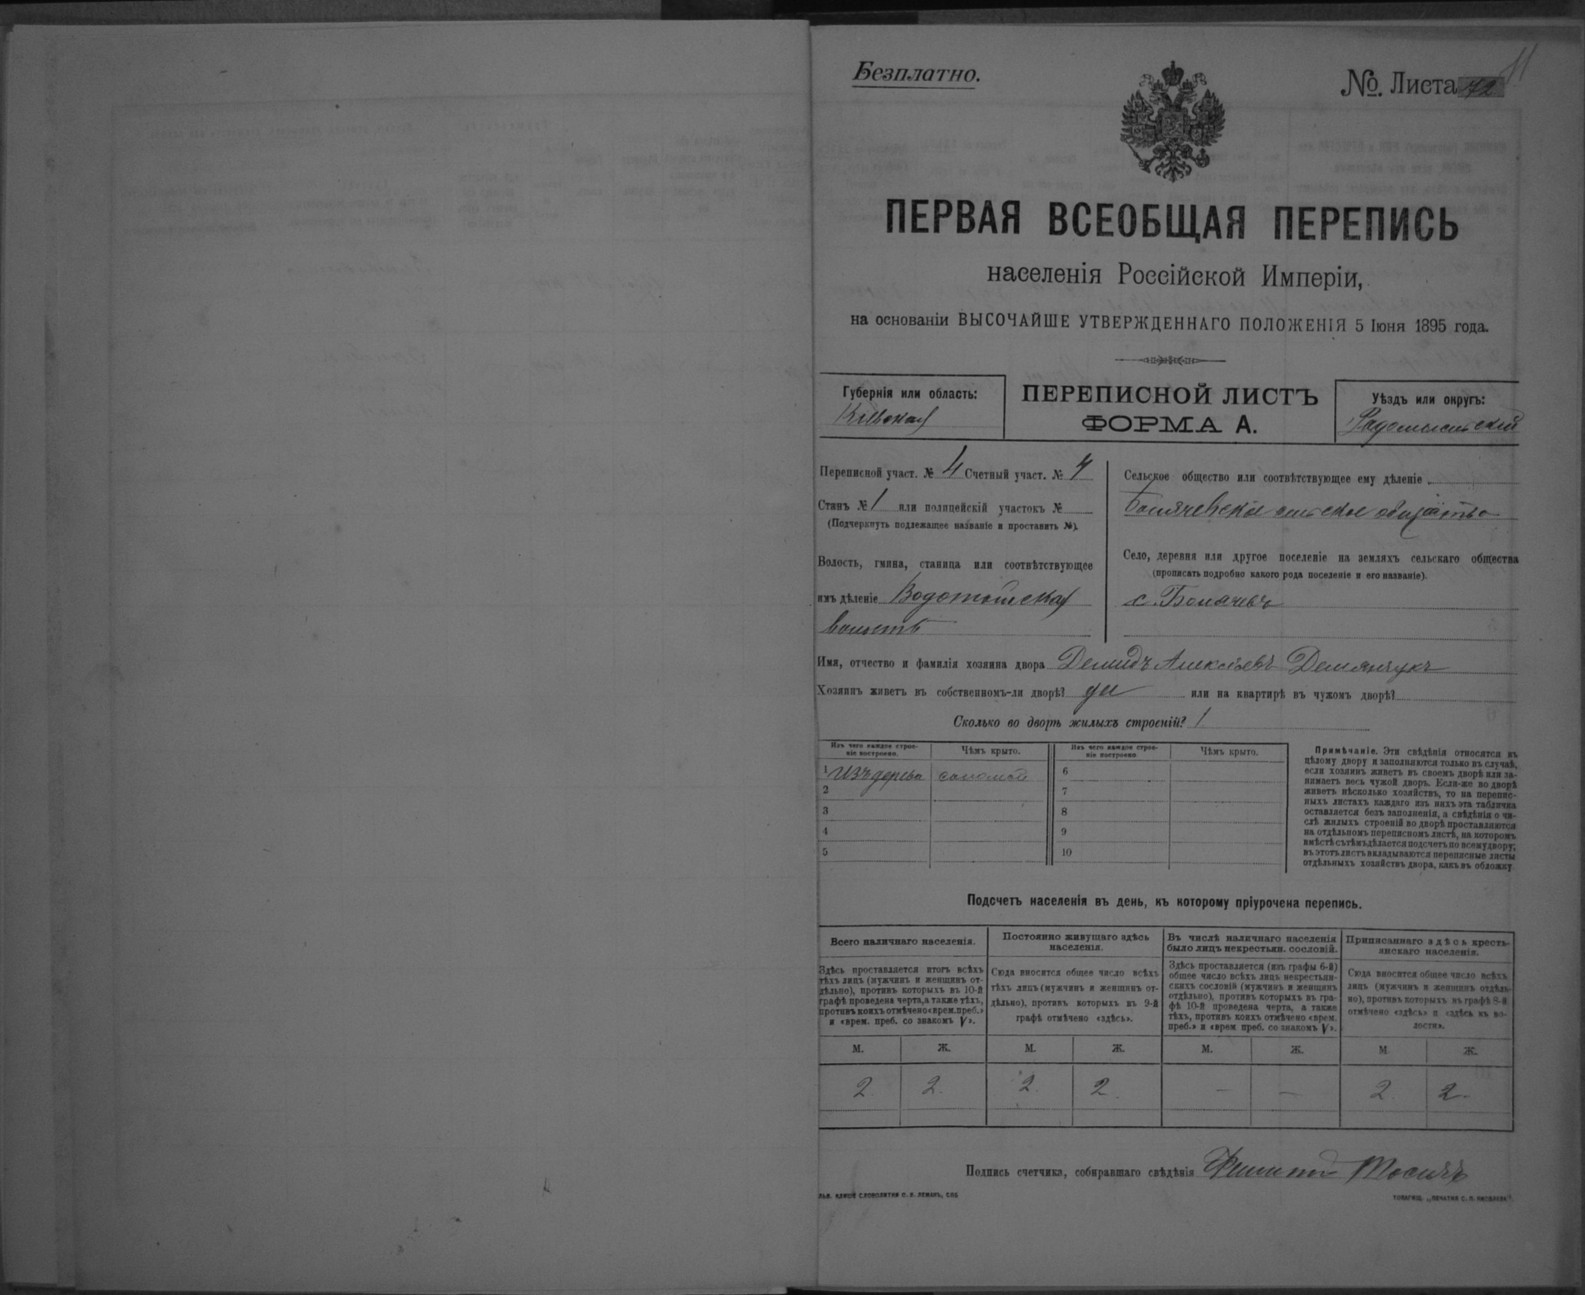 Безплатно.
№. Листа 72
11
ПЕРВАЯ ВСЕОБЩАЯ ПЕРЕПИСЬ
населенія Россійской Имперіи,
на основаніи ВЫСОЧАЙШЕ УТВЕРЖДЕННАГО ПОЛОЖЕНІЯ 5 Іюня 1895 года.
Губернія или область:
Кіевская
ПЕРЕПИСНОЙ ЛИСТЪ
ФОРМА А.
Уѣздъ или округъ:
Радомысльскій
Переписной участ. № 4 Счетный участ. № 4
Станъ № 1 или полицейскій участокъ №
(Подчеркнуть подлежащее названіе и проставить №).
Волость, гмина, станица или соотвѣтствующее
имъ дѣленіе Водотыйская
волость
Сельское общество или соотвѣтствующее ему дѣленіе
сельское общество
Село, деревня или другое поселеніе на земляхъ сельскаго общества
(прописать подробно какого рода поселеніе и его названіе).
с. Болячевъ
Имя, отчество и фамилія хозяина двора Демидъ Алексѣевъ Демянчукъ
Хозяинъ живетъ въ собственномъ-ли дворѣ? да или на квартирѣ въ чужомъ дворѣ?
Сколько во дворѣ жилыхъ строеній? 1
Изъ чего каждое строеніе построено. Чѣмъ крыто. Изъ чего каждое строеніе построено. Чѣмъ крыто.
1 Изъ дерева соломой 6
2 7
3 8
4 9
5 10
Примѣчаніе. Эти свѣдѣнія относятся къ
цѣлому двору и заполняются только въ случаѣ,
если хозяинъ живетъ въ своемъ дворѣ или за-
нимаетъ весь чужой дворъ. Если-же во дворѣ
живетъ нѣсколько хозяйствъ, то на перепис-
ныхъ листахъ каждаго изъ нихъ эта табличка
оставляется безъ заполненія, а свѣдѣнія о чи-
слѣ жилыхъ строеній во дворѣ проставляются
на отдѣльномъ переписномъ листѣ, на которомъ
вмѣстѣ съ тѣмъ дѣлается подсчетъ по всему двору;
въ этотъ листъ вкладываются переписные листы
отдѣльныхъ хозяйствъ двора, какъ въ обложку
Подсчетъ населенія въ день, къ которому пріурочена перепись.
Всего наличнаго населенія.
Здѣсь проставляется итогъ всѣхъ
тѣхъ лицъ (мужчинъ и женщинъ от-
дѣльно), противъ которыхъ въ 10-й
графѣ проведена черта, а также тѣхъ,
противъ коихъ отмѣчено «врем. преб.»
и «врем. преб. со знакомъ V».
Постоянно живущаго здѣсь
населенія.
Сюда вносится общее число всѣхъ
тѣхъ лицъ (мужчинъ и женщинъ от-
дѣльно), противъ которыхъ въ 9-й
графѣ отмѣчено «здѣсь».
Въ числѣ наличнаго населенія
было лицъ некрестьян. сословій.
Здѣсь проставляется (изъ графы 6-й)
общее число всѣхъ лицъ некрестьян-
скихъ сословій (мужчинъ и женщинъ
отдѣльно), противъ которыхъ въ гра-
фѣ 10-й проведена черта, а также
тѣхъ, противъ коихъ отмѣчено «врем.
преб.» и «врем преб. со знакомъ V».
Приписаннаго здѣсь кресть-
янскаго населенія.
Сюда вносится общее число всѣхъ
лицъ (мужчинъ и женщинъ отдѣль-
но), противъ которыхъ въ графѣ 8-й
отмѣчено «здѣсь» и «здѣсь въ во-
лости».
М. Ж. М. Ж. М. Ж. М. Ж.
2 2 2 2 — — 2 2
Подпись счетчика, собиравшаго свѣдѣнія